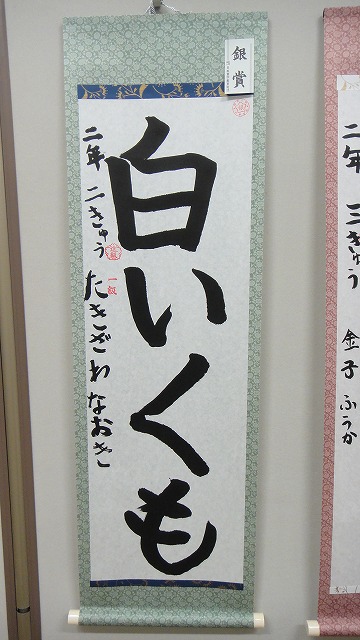 銀賞
白いくも
二年 二きゅう
一級
たきざわ なおき
二年 三きゅう 金子 ふうか